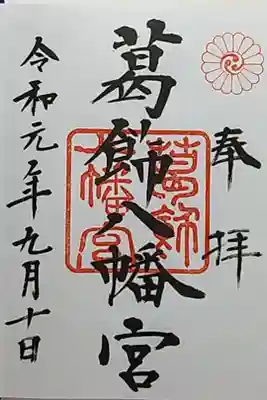 奉拝
葛飾八幡宮
葛飾八幡宮
令和元年九月十日